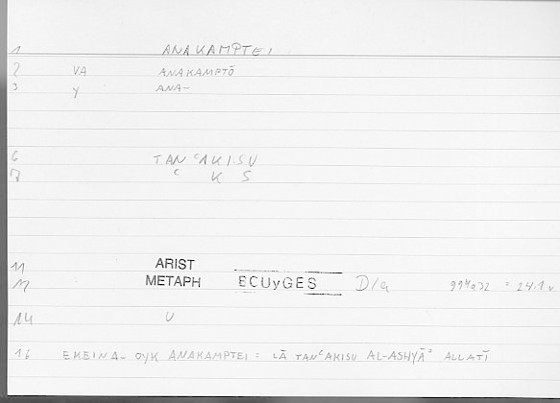 1 ANAKAMPTEI
2 VA ANAKAMPTŌ
3 y ANA-
6 TANʿAKISU
7 ʿ K S
11 ARIST
12 METAPH ECUyGES D/a 994a32 = 24.1
14 U
16 EKEINA- OYK ANAKAMPTEI = LĀ TANʿAKISU AL-ASHYĀʾ ALLATĪ